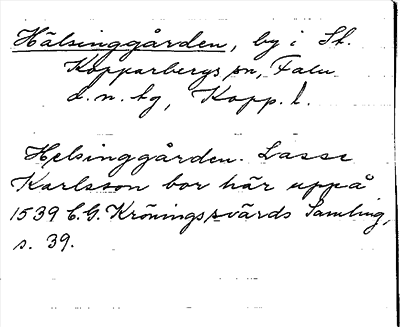 Hälsinggården, by i St.
Kopparbergs sn, Falu
d.n. tg, Kopp. l.
Helsinggården. Lasse
Karlsson bor här uppå
1539 C.G. Kröningssvärds Samling,
s. 39.